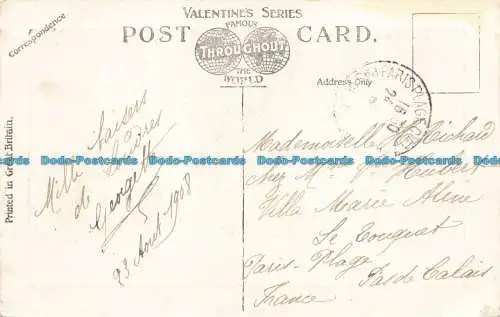 VALENTINE'S SERIES
FAMOUS
POST CARD.
THROUGHOUT
THE
WORLD
Correspondence
Address Only
Printed in Great Britain.
PARIS-PLAGE
Mille baisers
de Londres
Georgette
23 Août 1908
Mademoiselle Richard
chez Mme Hubert
Villa Marie Aline
Le Touquet
Paris-Plage
Pas de Calais
France
Dodo-Postcards Dodo-Postcards Dodo-Postcards Dodo-Postcards Dodo-Postcards